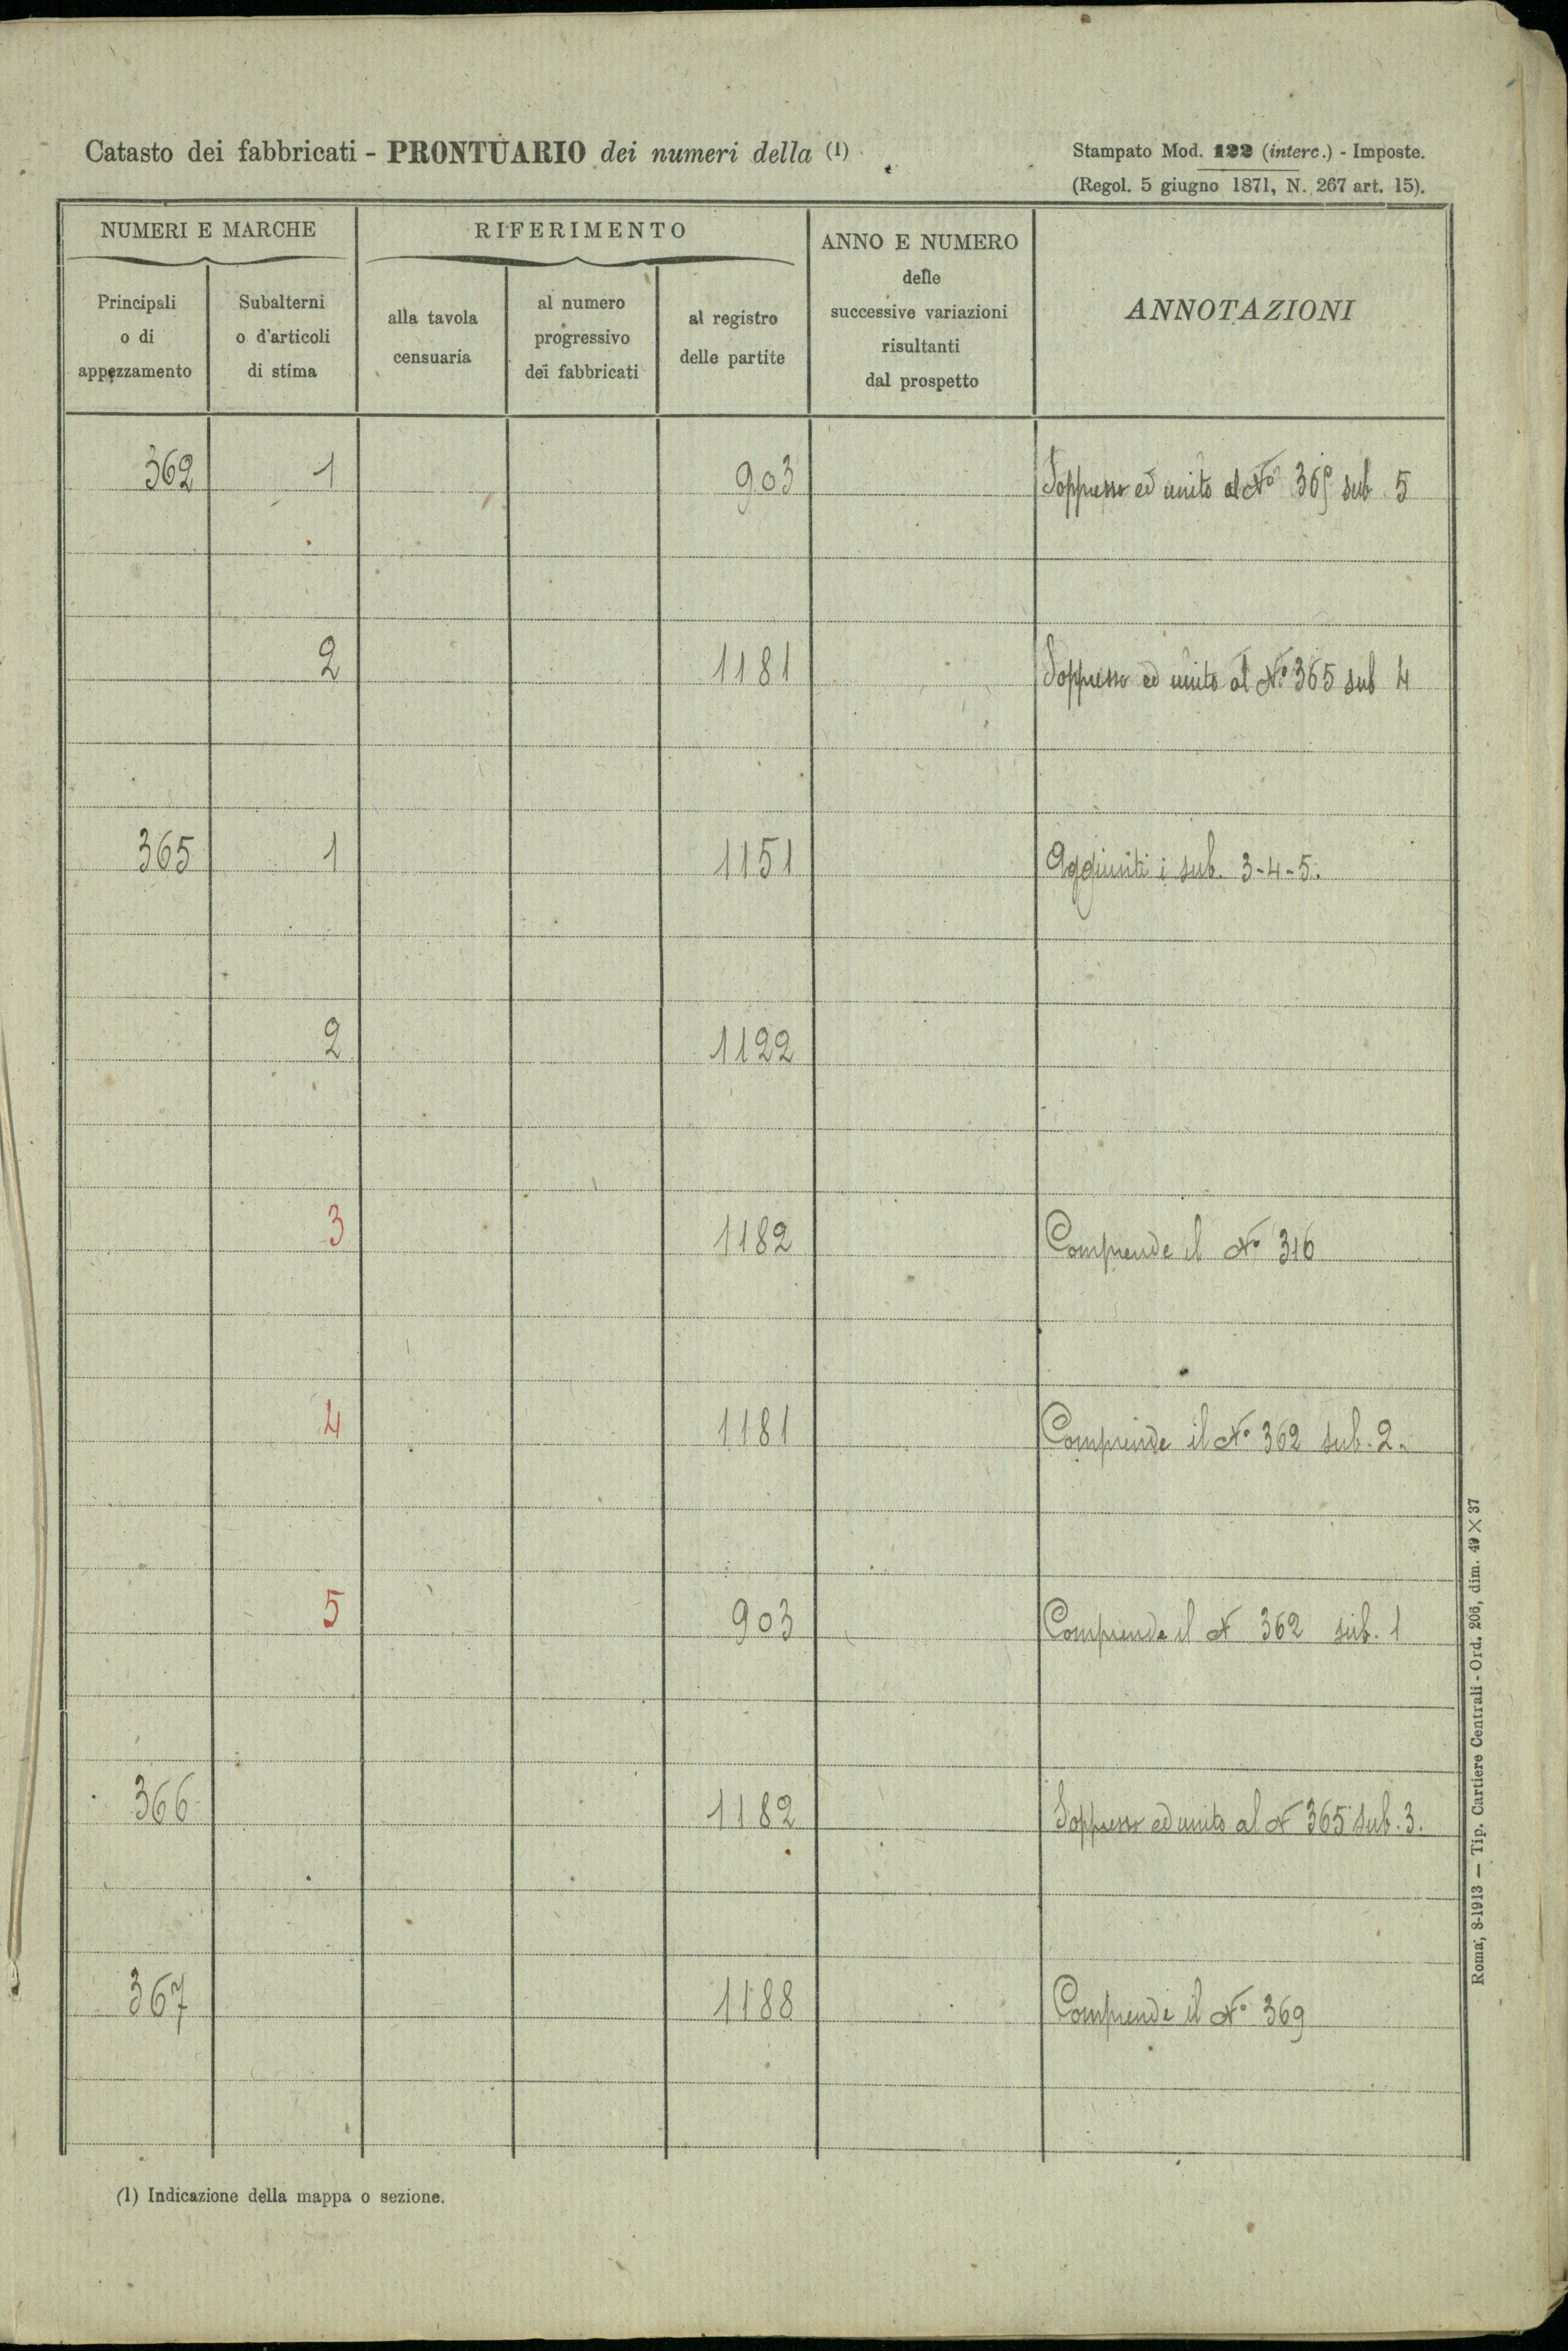 Catasto dei fabbricati - PRONTUARIO dei numeri della (1)
Stampato Mod. 122 (interc.) - Imposte.
(Regol. 5 giugno 1871, N. 267 art. 15).
NUMERI E MARCHE
RIFERIMENTO
ANNO E NUMERO
delle
successive variazioni
risultanti
dal prospetto
ANNOTAZIONI
Principali
o di
appezzamento
Subalterni
o d'articoli
di stima
alla tavola
censuaria
al numero
progressivo
dei fabbricati
al registro
delle partite
362 1 903 Soppresso ed unito al N° 365 sub 5
2 1181 Soppresso ed unito al N° 365 sub 4
365 1 1151 Aggiunti i sub. 3-4-5.
2 1122
3 1182 Comprende il N° 316
4 1181 Comprende il N° 362 sub. 2.
5 903 Comprende il N 362 sub. 1
366 1182 Soppresso ed unito al N 365 sub. 3.
367 1188 Comprende il N° 369
(1) Indicazione della mappa o sezione.
Roma, 8-1913 — Tip. Cartiere Centrali - Ord. 206, dim. 49 × 37